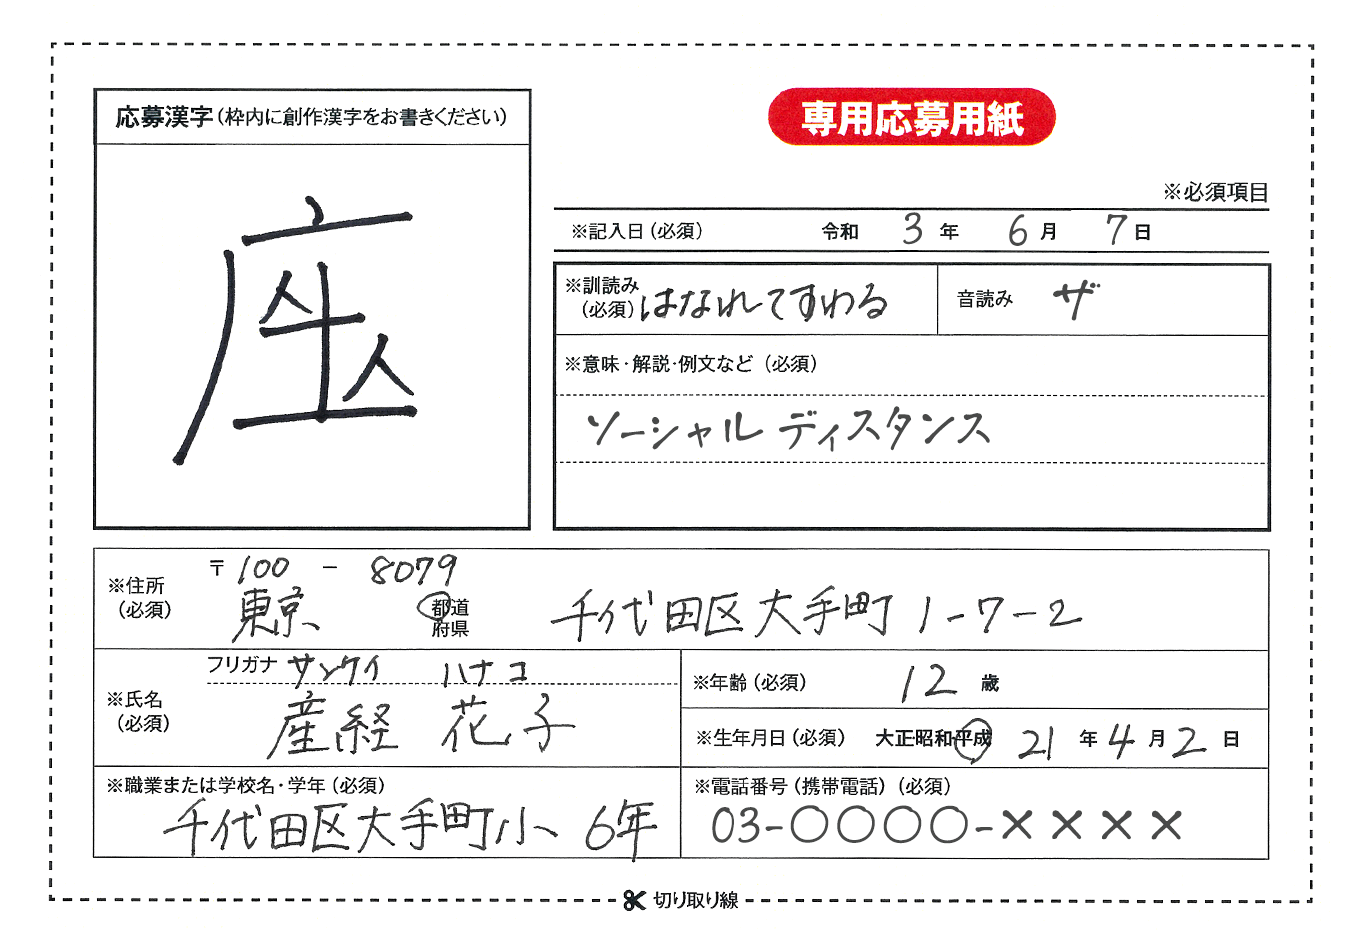 応募漢字(枠内に創作漢字をお書きください)
専用応募用紙
※必須項目
※記入日(必須) 令和 3 年 6 月 7 日
※訓読み(必須) はなれてすわる 音読み ザ
※意味・解説・例文など(必須)
ソーシャルディスタンス
※住所(必須) 〒100-8079
東京 都道府県 千代田区大手町1-7-2
フリガナ サンケイ ハナコ
※氏名(必須) 産経 花子
※年齢(必須) 12 歳
※生年月日(必須) 大正昭和平成 21 年 4 月 2 日
※職業または学校名・学年(必須)
千代田区大手町小 6年
※電話番号(携帯電話)(必須)
03-〇〇〇〇-××××
切り取り線